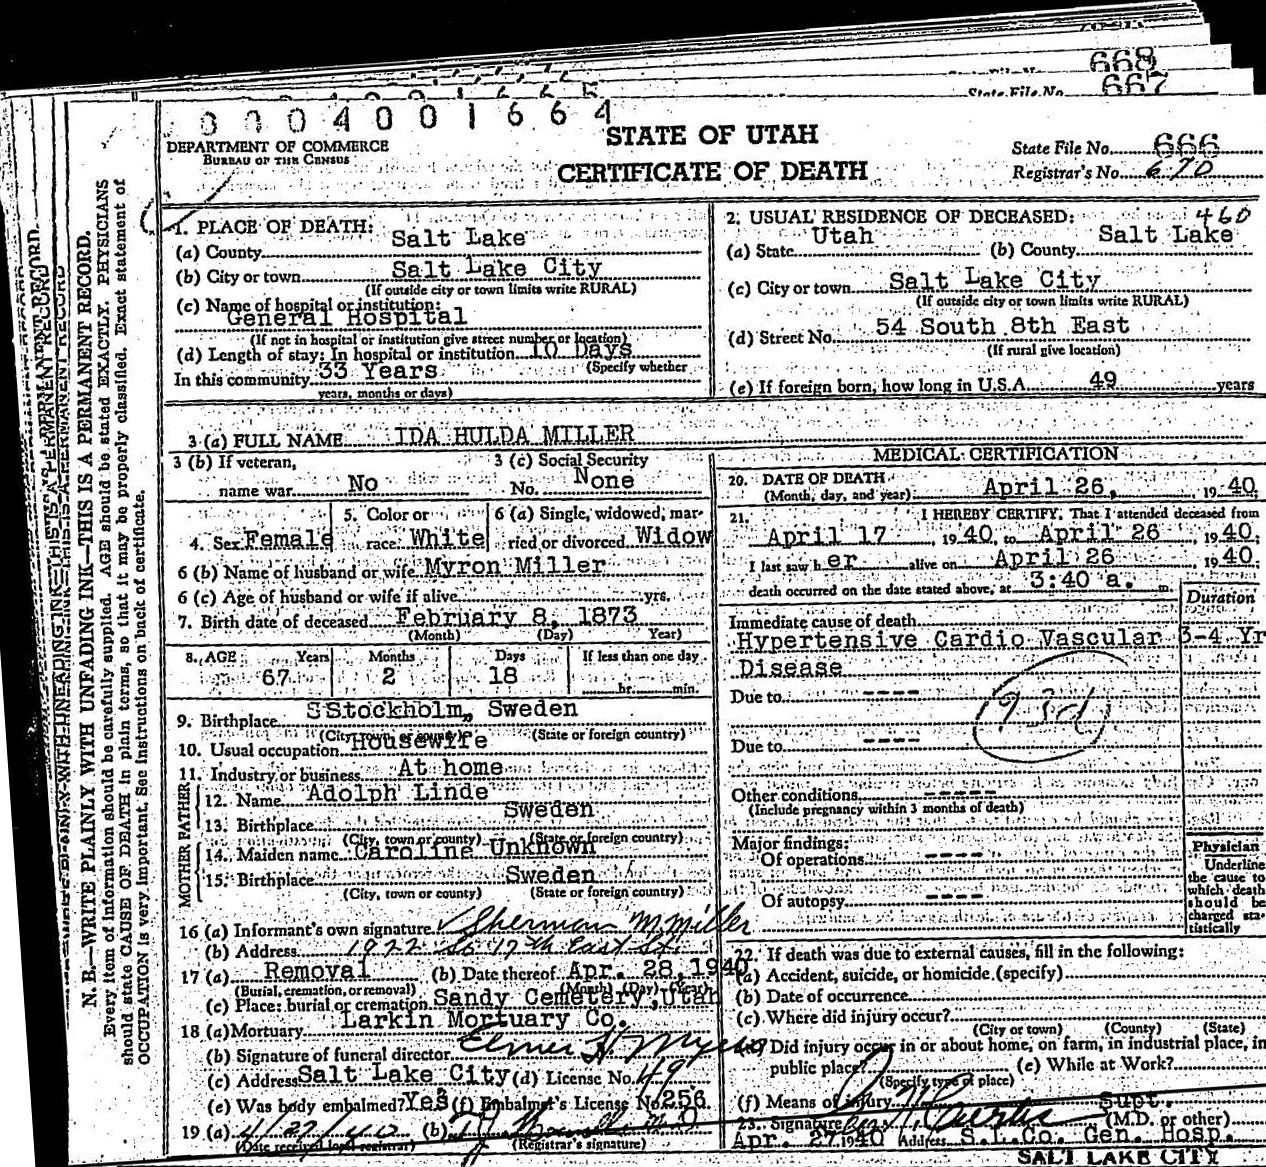 668
State File No. 667
0 0 0 4 0 0 1 6 6 4
DEPARTMENT OF COMMERCE
BUREAU OF THE CENSUS
STATE OF UTAH
CERTIFICATE OF DEATH
State File No. 666
Registrar's No. 670
N. B.—WRITE PLAINLY WITH UNFADING INK—THIS IS A PERMANENT RECORD.
Every item of information should be carefully supplied. AGE should be stated EXACTLY. PHYSICIANS
should state CAUSE OF DEATH in plain terms, so that it may be properly classified. Exact statement of
OCCUPATION is very important. See instructions on back of certificate.
1. PLACE OF DEATH:
(a) County Salt Lake
(b) City or town Salt Lake City
(If outside city or town limits write RURAL)
(c) Name of hospital or institution:
General Hospital
(If not in hospital or institution give street number or location)
(d) Length of stay: In hospital or institution 10 Days
(Specify whether
In this community 33 Years
years, months or days)
2. USUAL RESIDENCE OF DECEASED: 460
(a) State Utah (b) County Salt Lake
(c) City or town Salt Lake City
(If outside city or town limits write RURAL)
(d) Street No. 54 South 8th East
(If rural give location)
(e) If foreign born, how long in U.S.A. 49 years
3 (a) FULL NAME IDA HULDA MILLER
3 (b) If veteran,
name war No
3 (c) Social Security
No. None
4. Sex Female
5. Color or
race White
6 (a) Single, widowed, mar-
ried or divorced Widow
6 (b) Name of husband or wife Myron Miller
6 (c) Age of husband or wife if alive yrs.
7. Birth date of deceased February 8, 1873
(Month) (Day) Year)
8. AGE Years Months Days If less than one day
67 2 18 hr. min.
9. Birthplace SStockholm, Sweden
(City, town or county) (State or foreign country)
10. Usual occupation Housewife
11. Industry or business At home
FATHER
12. Name Adolph Linde
13. Birthplace Sweden
(City, town or county) (State or foreign country)
MOTHER
14. Maiden name Caroline Unknown
15. Birthplace Sweden
(City, town or county) (State or foreign country)
16 (a) Informant's own signature Sherman M Miller
(b) Address 1922 So 17th East St.
17 (a) Removal (b) Date thereof Apr. 28, 1940
(Burial, cremation, or removal) (Month) (Day) (Year)
(c) Place: burial or cremation Sandy Cemetery, Utah
18 (a) Mortuary Larkin Mortuary Co.
(b) Signature of funeral director Elmer H. Myers
(c) Address Salt Lake City (d) License No. 49
(e) Was body embalmed? Yes (f) Embalmer's License No. 256
19 (a) 4/27/40 (b)
(Date received local registrar) (Registrar's signature)
MEDICAL CERTIFICATION
20. DATE OF DEATH
(Month, day, and year) April 26, 1940
21. I HEREBY CERTIFY, That I attended deceased from
April 17, 1940, to April 26, 1940.
I last saw h er alive on April 26 1940.
death occurred on the date stated above, at 3:40 a. m.
Duration
Immediate cause of death
Hypertensive Cardio Vascular 3-4 Yr
Disease
Due to ----
93d
Due to ----
Other conditions -----
(Include pregnancy within 3 months of death)
Major findings:
Of operations ----
Of autopsy ----
Physician
Underline
the cause to
which death
should be
charged sta-
tistically
22. If death was due to external causes, fill in the following:
(a) Accident, suicide, or homicide (specify)
(b) Date of occurrence
(c) Where did injury occur?
(City or town) (County) (State)
Did injury occur in or about home, on farm, in industrial place, in
public place? (e) While at Work?
(Specify type of place)
(f) Means of injury
23. Signature Curtis Supt. (M.D. or other)
Apr. 27 1940 Address S.L.Co. Gen. Hosp.
SALT LAKE CITY